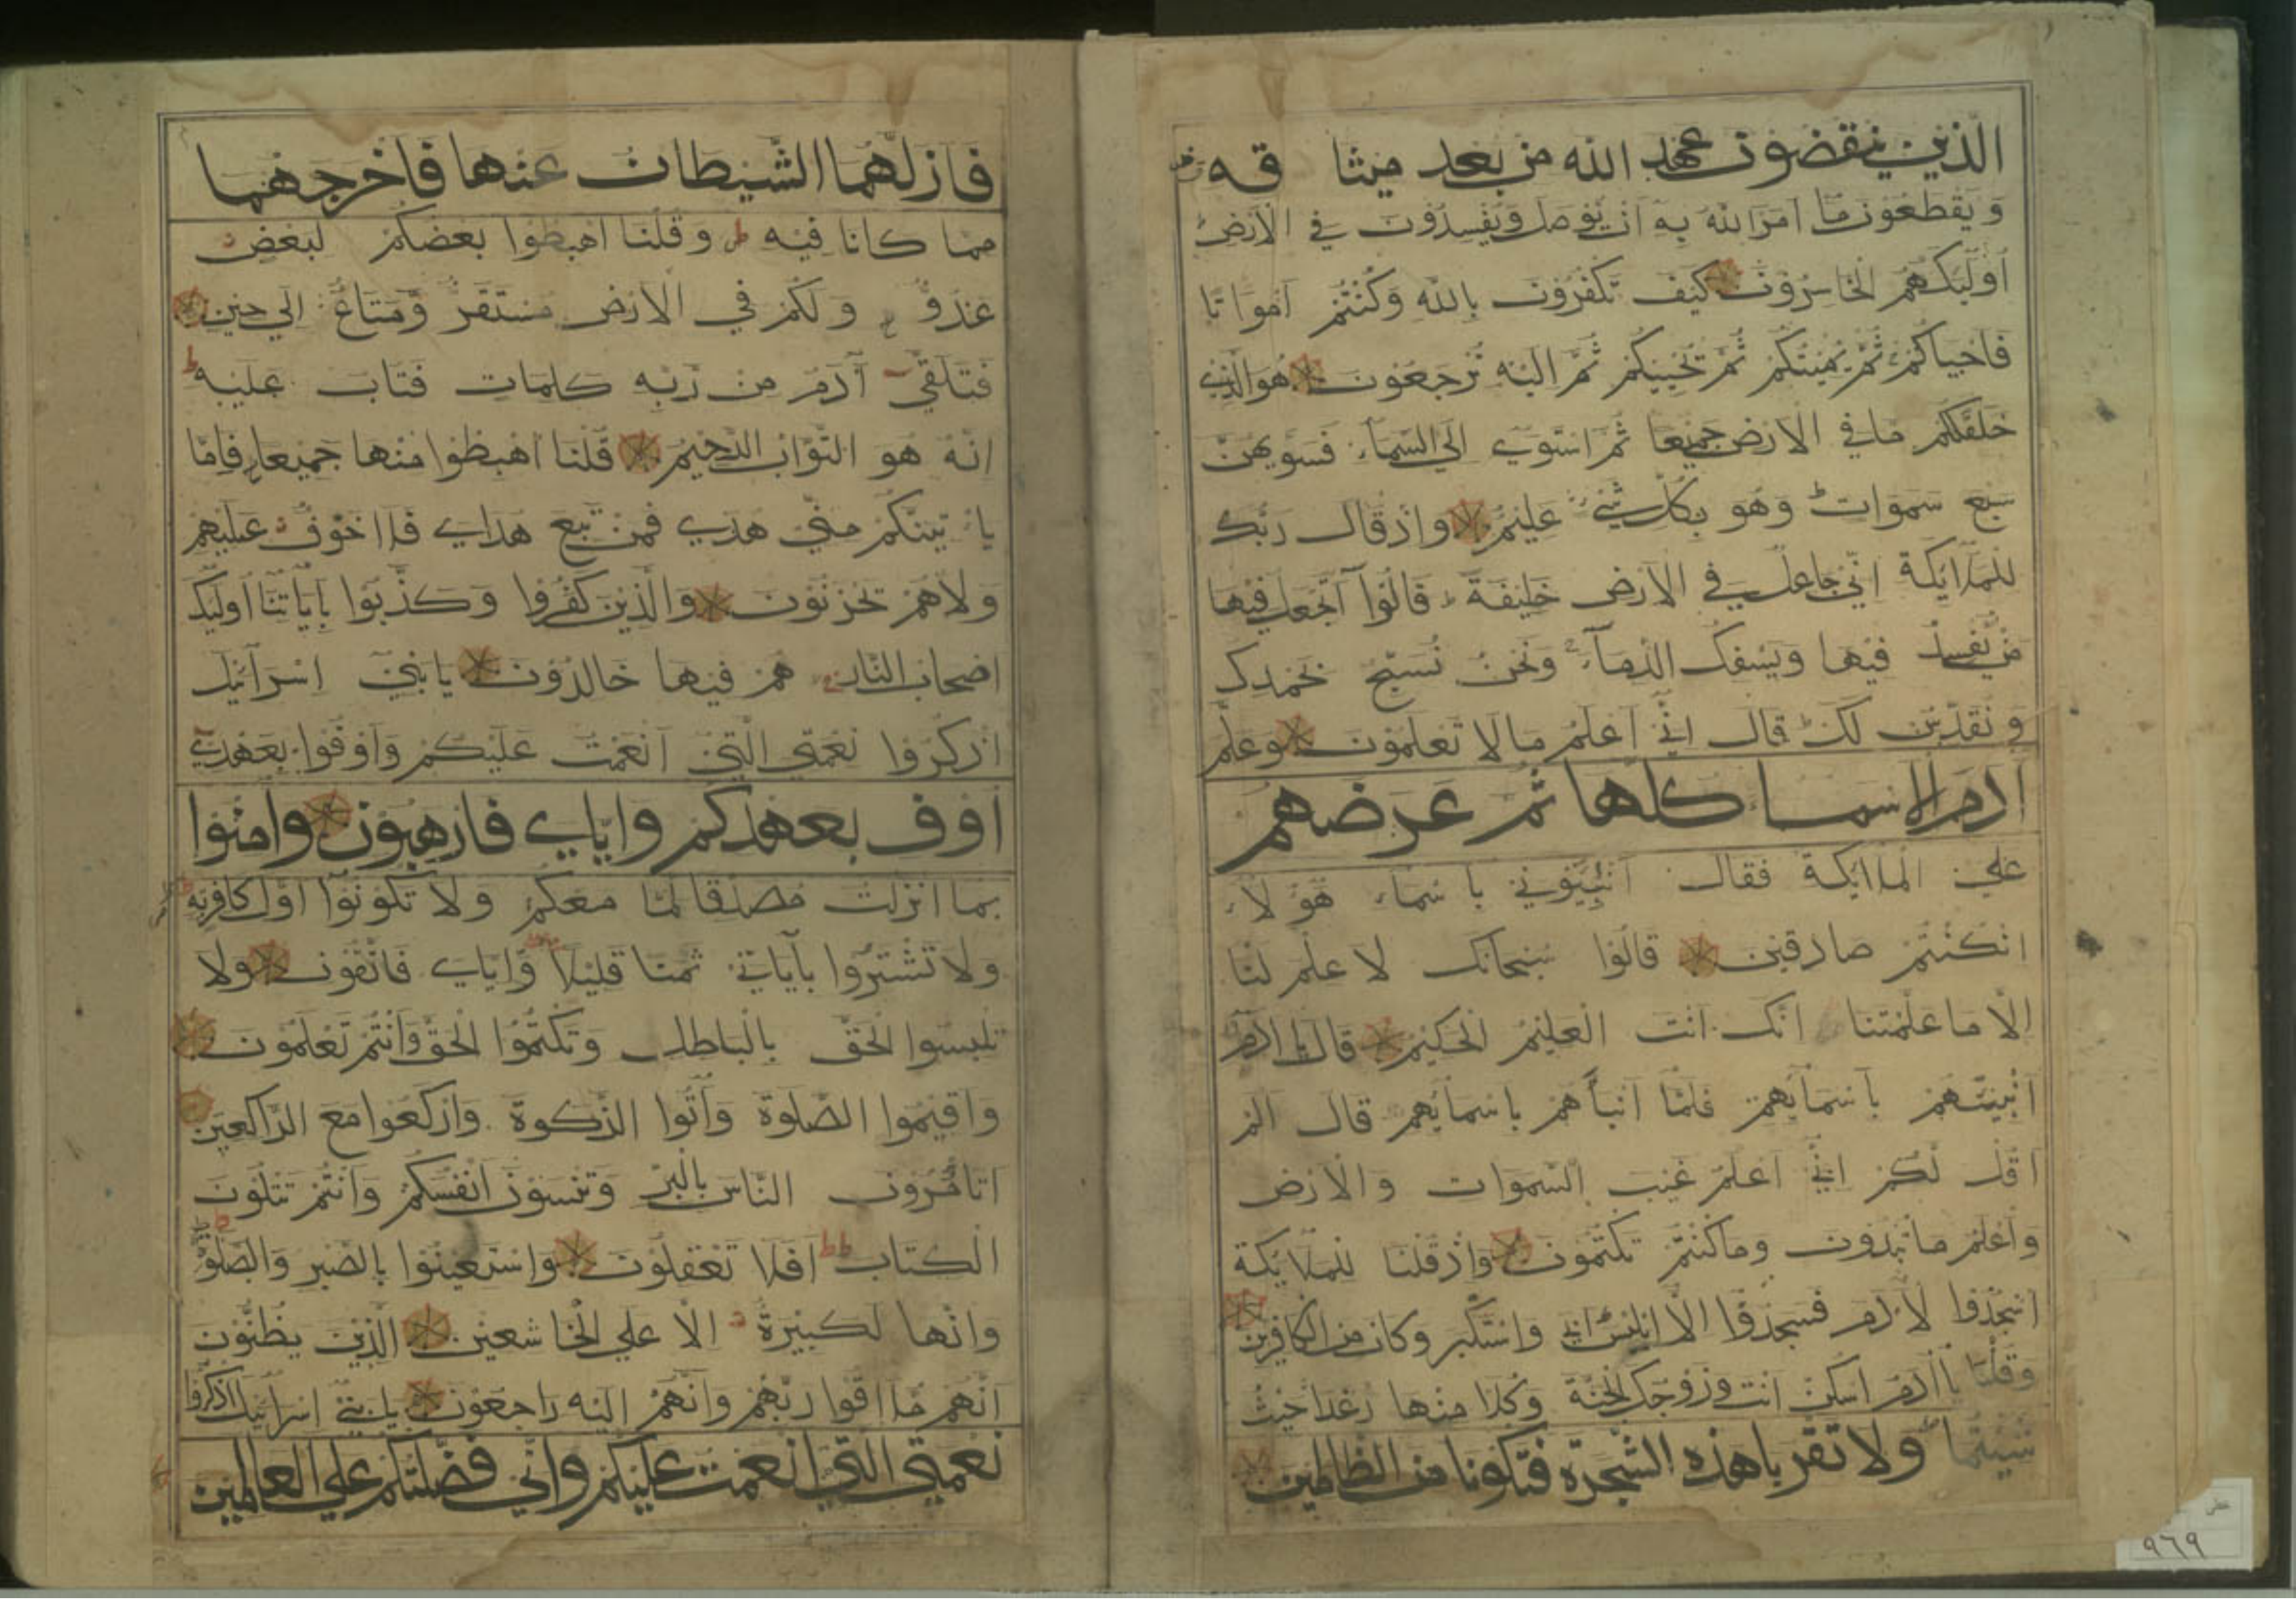 الذين ينقضون عهد الله من بعد ميثا قه
و يقطعون ما امر الله به ان يوصل ويفسدون في الارض
اولئك هم الخاسرون كيف تكفرون بالله وكنتم امواتا
فاحياكم ثم يميتكم ثم يحييكم ثم اليه ترجعون هو الذي
خلق لكم ما في الارض جميعا ثم استوي الي السماء فسويهن
سبع سموات وهو بكل شيء عليم واذ قال ربك
للملائكة اني جاعل في الارض خليفة قالوا اتجعل فيها
من يفسد فيها ويسفك الدماء ونحن نسبح بحمدك
و نقدس لك قال اني اعلم ما لا تعلمون وعلم
ادم الاسما كلها ثم عرضهم
علي الملائكة فقال انبئوني باسماء هؤلاء
ان كنتم صادقين قالوا سبحانك لا علم لنا
الا ما علمتنا انك انت العليم الحكيم قال يا ادم
انبئهم باسمائهم فلما انبأهم باسمائهم قال الم
اقل لكم اني اعلم غيب السموات والارض
واعلم ما تبدون وما كنتم تكتمون واذ قلنا للملائكة
اسجدوا لادم فسجدوا الا ابليس ابي واستكبر وكان من الكافرين
وقلنا يا ادم اسكن انت وزوجك الجنة وكلا منها رغدا حيث
شئتما ولا تقربا هذه الشجرة فتكونا من الظالمين
فازلهما الشيطان عنها فاخرجهما
مما كانا فيه وقلنا اهبطوا بعضكم لبعض
عدو ولكم في الارض مستقر ومتاع الي حين
فتلقي آدم من ربه كلمات فتاب عليه
انه هو التواب الرحيم قلنا اهبطوا منها جميعا فاما
ياتينكم مني هدي فمن تبع هداي فلا خوف عليهم
ولا هم يحزنون والذين كفروا وكذبوا بآياتنا اوليك
اصحاب النار هم فيها خالدون يا بني اسرائيل
اذكروا نعمتي التي انعمت عليكم واوفوا بعهدي
اوف بعهدكم واياي فارهبون وامنوا
بما انزلت مصدقا لما معكم ولا تكونوا اول كافر به
ولا تشتروا بآياتي ثمنا قليلا واياي فاتقون ولا
تلبسوا الحق بالباطل وتكتموا الحق وانتم تعلمون
واقيموا الصلوة وآتوا الزكوة واركعوا مع الراكعين
اتامرون الناس بالبر وتنسون انفسكم وانتم تتلون
الكتاب افلا تعقلون واستعينوا بالصبر والصلوة
وانها لكبيرة الا علي الخاشعين الذين يظنون
انهم ملاقوا ربهم وانهم اليه راجعون يا بني اسرائيل اذكروا
نعمتي التي انعمت عليكم واني فضلتكم علي العالمين
خطي
٩٦٩